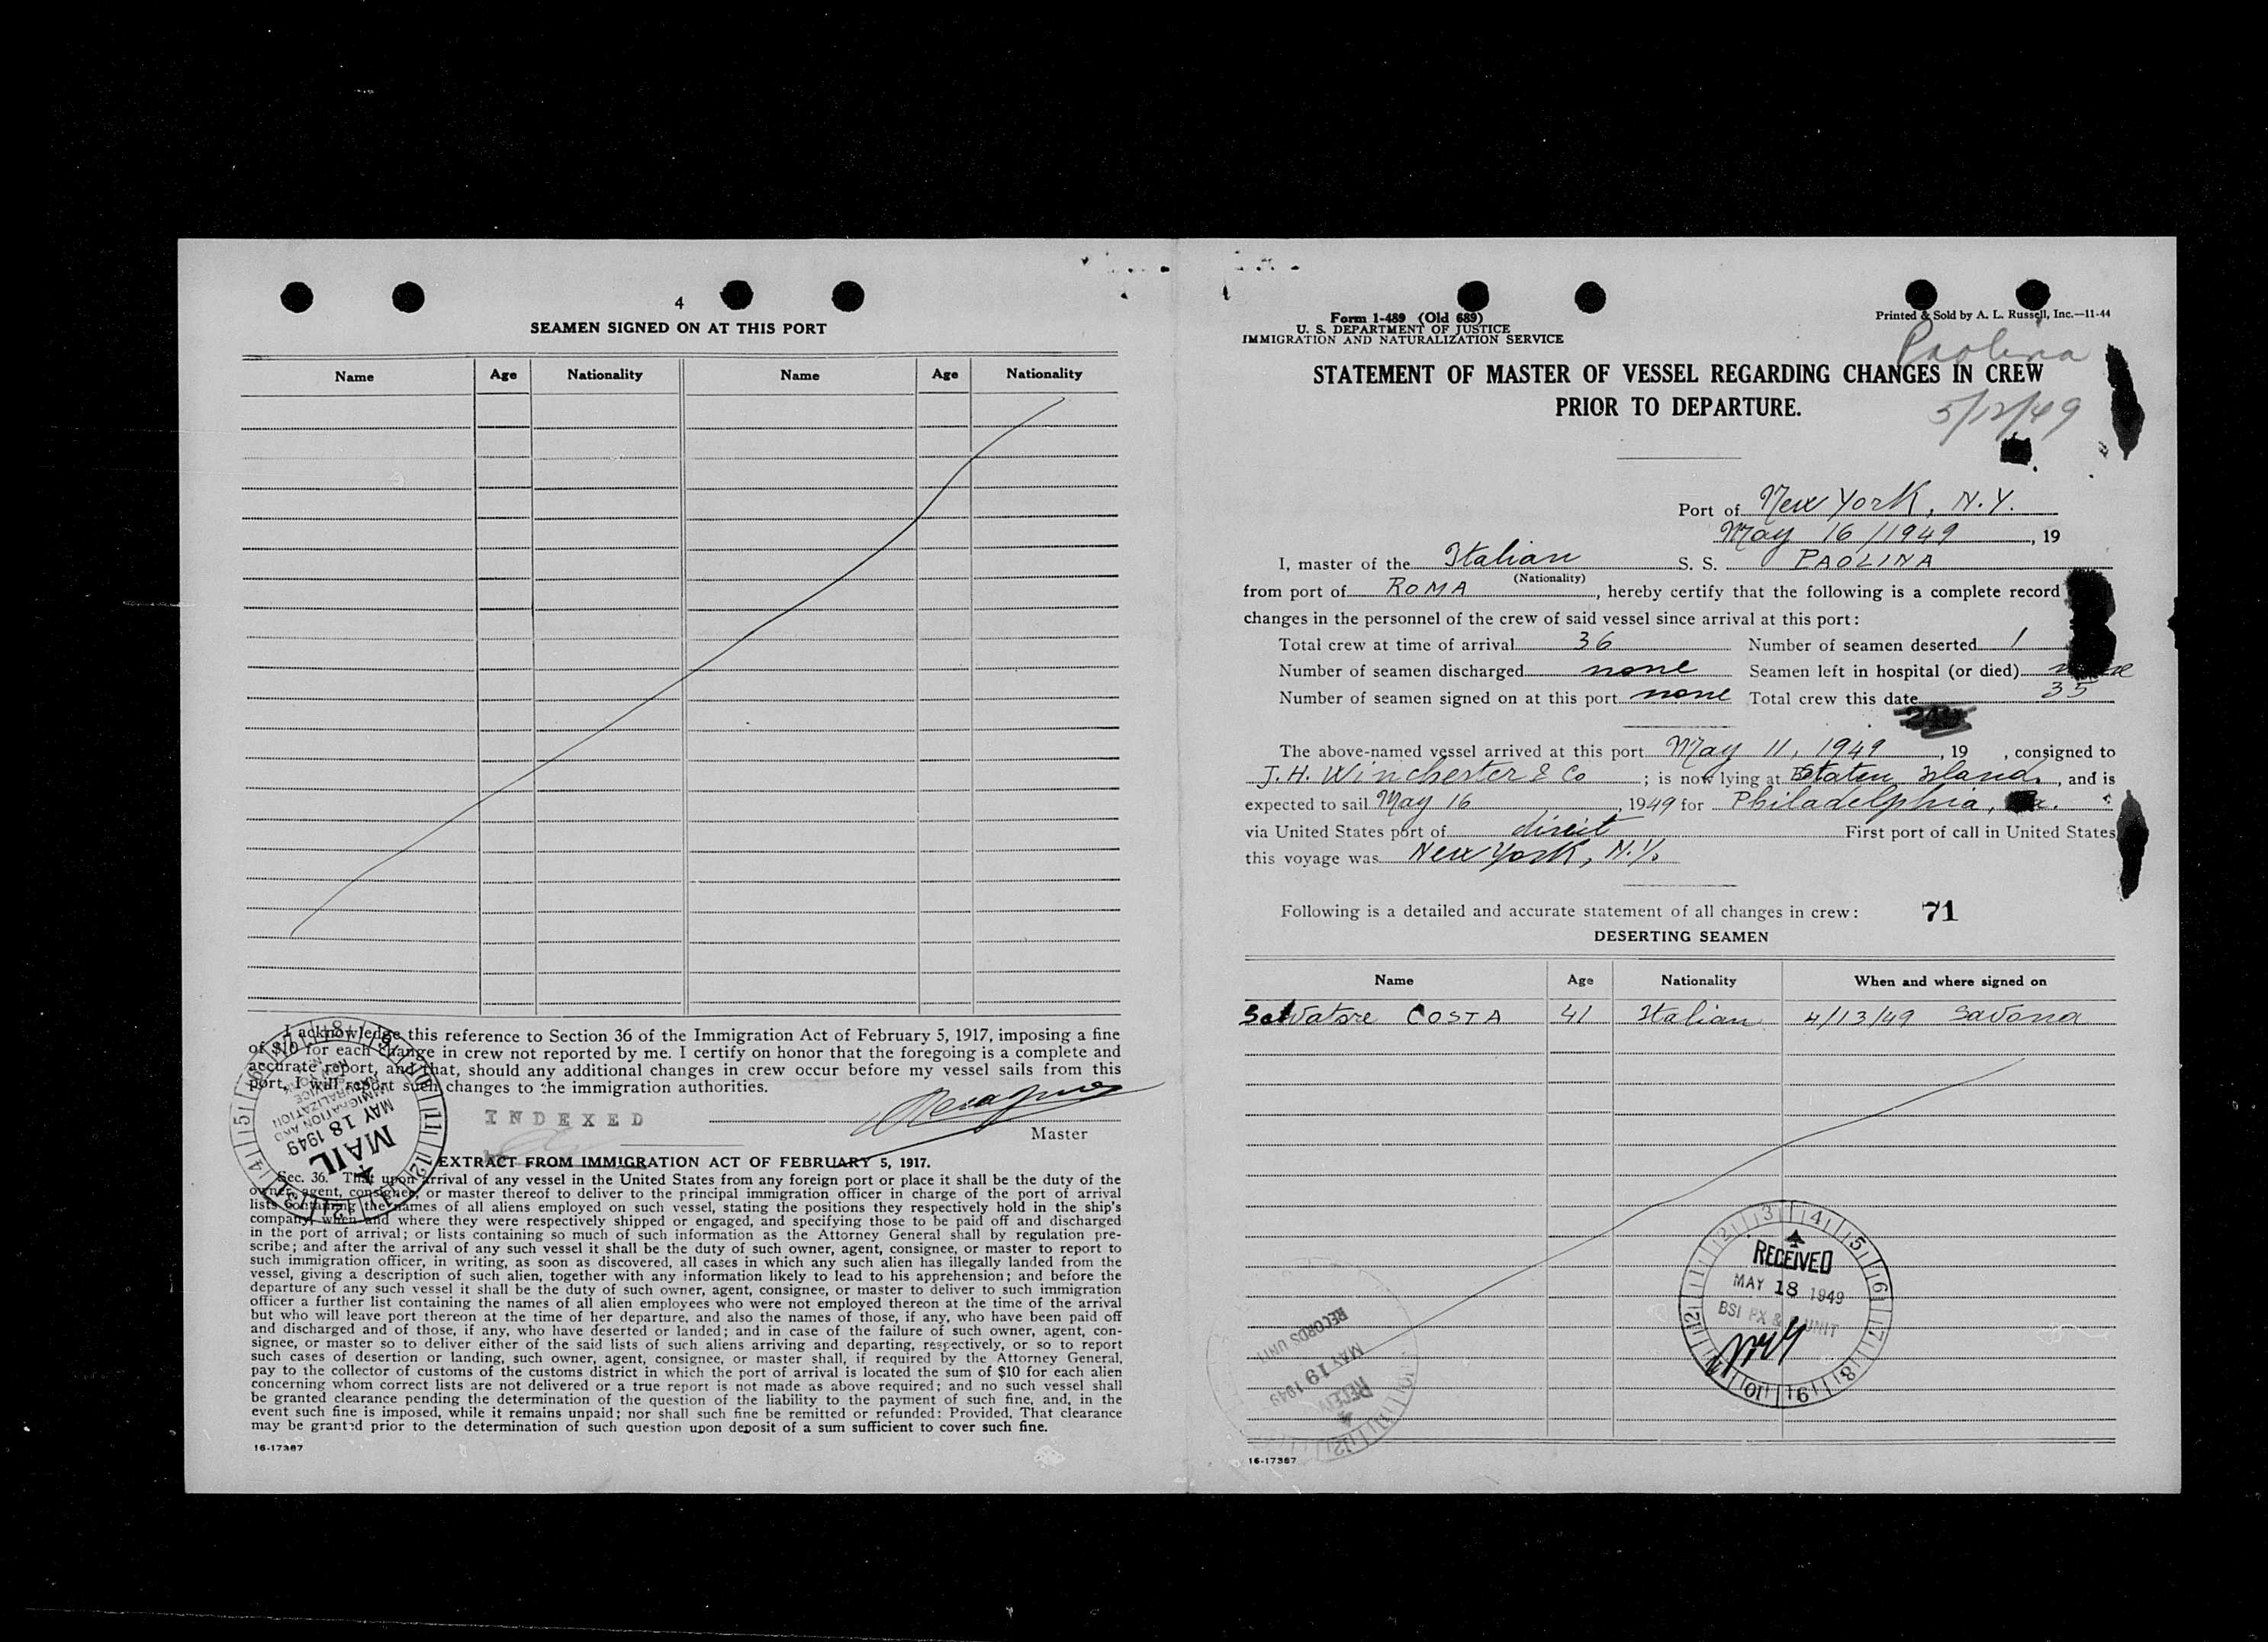 4
SEAMEN SIGNED ON AT THIS PORT
Name Age Nationality Name Age Nationality
I acknowledge this reference to Section 36 of the Immigration Act of February 5, 1917, imposing a fine
of $10 for each change in crew not reported by me. I certify on honor that the foregoing is a complete and
accurate report, and that, should any additional changes in crew occur before my vessel sails from this
port, I will report such changes to the immigration authorities.
INDEXED
Master
MAIL
MAY 18 1949
IMMIGRATION AND
NATURALIZATION
SERVICE
EXTRACT FROM IMMIGRATION ACT OF FEBRUARY 5, 1917.
Sec. 36. That upon arrival of any vessel in the United States from any foreign port or place it shall be the duty of the
owner, agent, consignee, or master thereof to deliver to the principal immigration officer in charge of the port of arrival
lists containing the names of all aliens employed on such vessel, stating the positions they respectively hold in the ship's
company, when and where they were respectively shipped or engaged, and specifying those to be paid off and discharged
in the port of arrival; or lists containing so much of such information as the Attorney General shall by regulation pre-
scribe; and after the arrival of any such vessel it shall be the duty of such owner, agent, consignee, or master to report to
such immigration officer, in writing, as soon as discovered, all cases in which any such alien has illegally landed from the
vessel, giving a description of such alien, together with any information likely to lead to his apprehension; and before the
departure of any such vessel it shall be the duty of such owner, agent, consignee, or master to deliver to such immigration
officer a further list containing the names of all alien employees who were not employed thereon at the time of the arrival
but who will leave port thereon at the time of her departure, and also the names of those, if any, who have been paid off
and discharged and of those, if any, who have deserted or landed; and in case of the failure of such owner, agent, con-
signee, or master so to deliver either of the said lists of such aliens arriving and departing, respectively, or so to report
such cases of desertion or landing, such owner, agent, consignee, or master shall, if required by the Attorney General,
pay to the collector of customs of the customs district in which the port of arrival is located the sum of $10 for each alien
concerning whom correct lists are not delivered or a true report is not made as above required; and no such vessel shall
be granted clearance pending the determination of the question of the liability to the payment of such fine, and, in the
event such fine is imposed, while it remains unpaid; nor shall such fine be remitted or refunded: Provided, That clearance
may be granted prior to the determination of such question upon deposit of a sum sufficient to cover such fine.
16-17367
Form 1-489 (Old 689)
U. S. DEPARTMENT OF JUSTICE
IMMIGRATION AND NATURALIZATION SERVICE
Printed & Sold by A. L. Russell, Inc.—11-44
Paolina
STATEMENT OF MASTER OF VESSEL REGARDING CHANGES IN CREW
PRIOR TO DEPARTURE.
5/12/49
Port of New York, N.Y.
May 16/1949, 19
I, master of the Italian S. S. PAOLINA
(Nationality)
from port of ROMA, hereby certify that the following is a complete record
changes in the personnel of the crew of said vessel since arrival at this port:
Total crew at time of arrival 36 Number of seamen deserted 1
Number of seamen discharged none Seamen left in hospital (or died) none
Number of seamen signed on at this port none Total crew this date 35
The above-named vessel arrived at this port May 11, 1949, 19 , consigned to
J. H. Winchester & Co ; is now lying at Staten Island, and is
expected to sail May 16, 1949 for Philadelphia, Pa.
via United States port of direct First port of call in United States
this voyage was New York, N.Y.
Following is a detailed and accurate statement of all changes in crew: 71
DESERTING SEAMEN
Name Age Nationality When and where signed on
Salvatore COSTA 41 Italian 4/13/49 Savona
RECEIVED
MAY 18 1949
BSI PX & UNIT
RECORDS UNIT
MAY 19 1949
16-17367